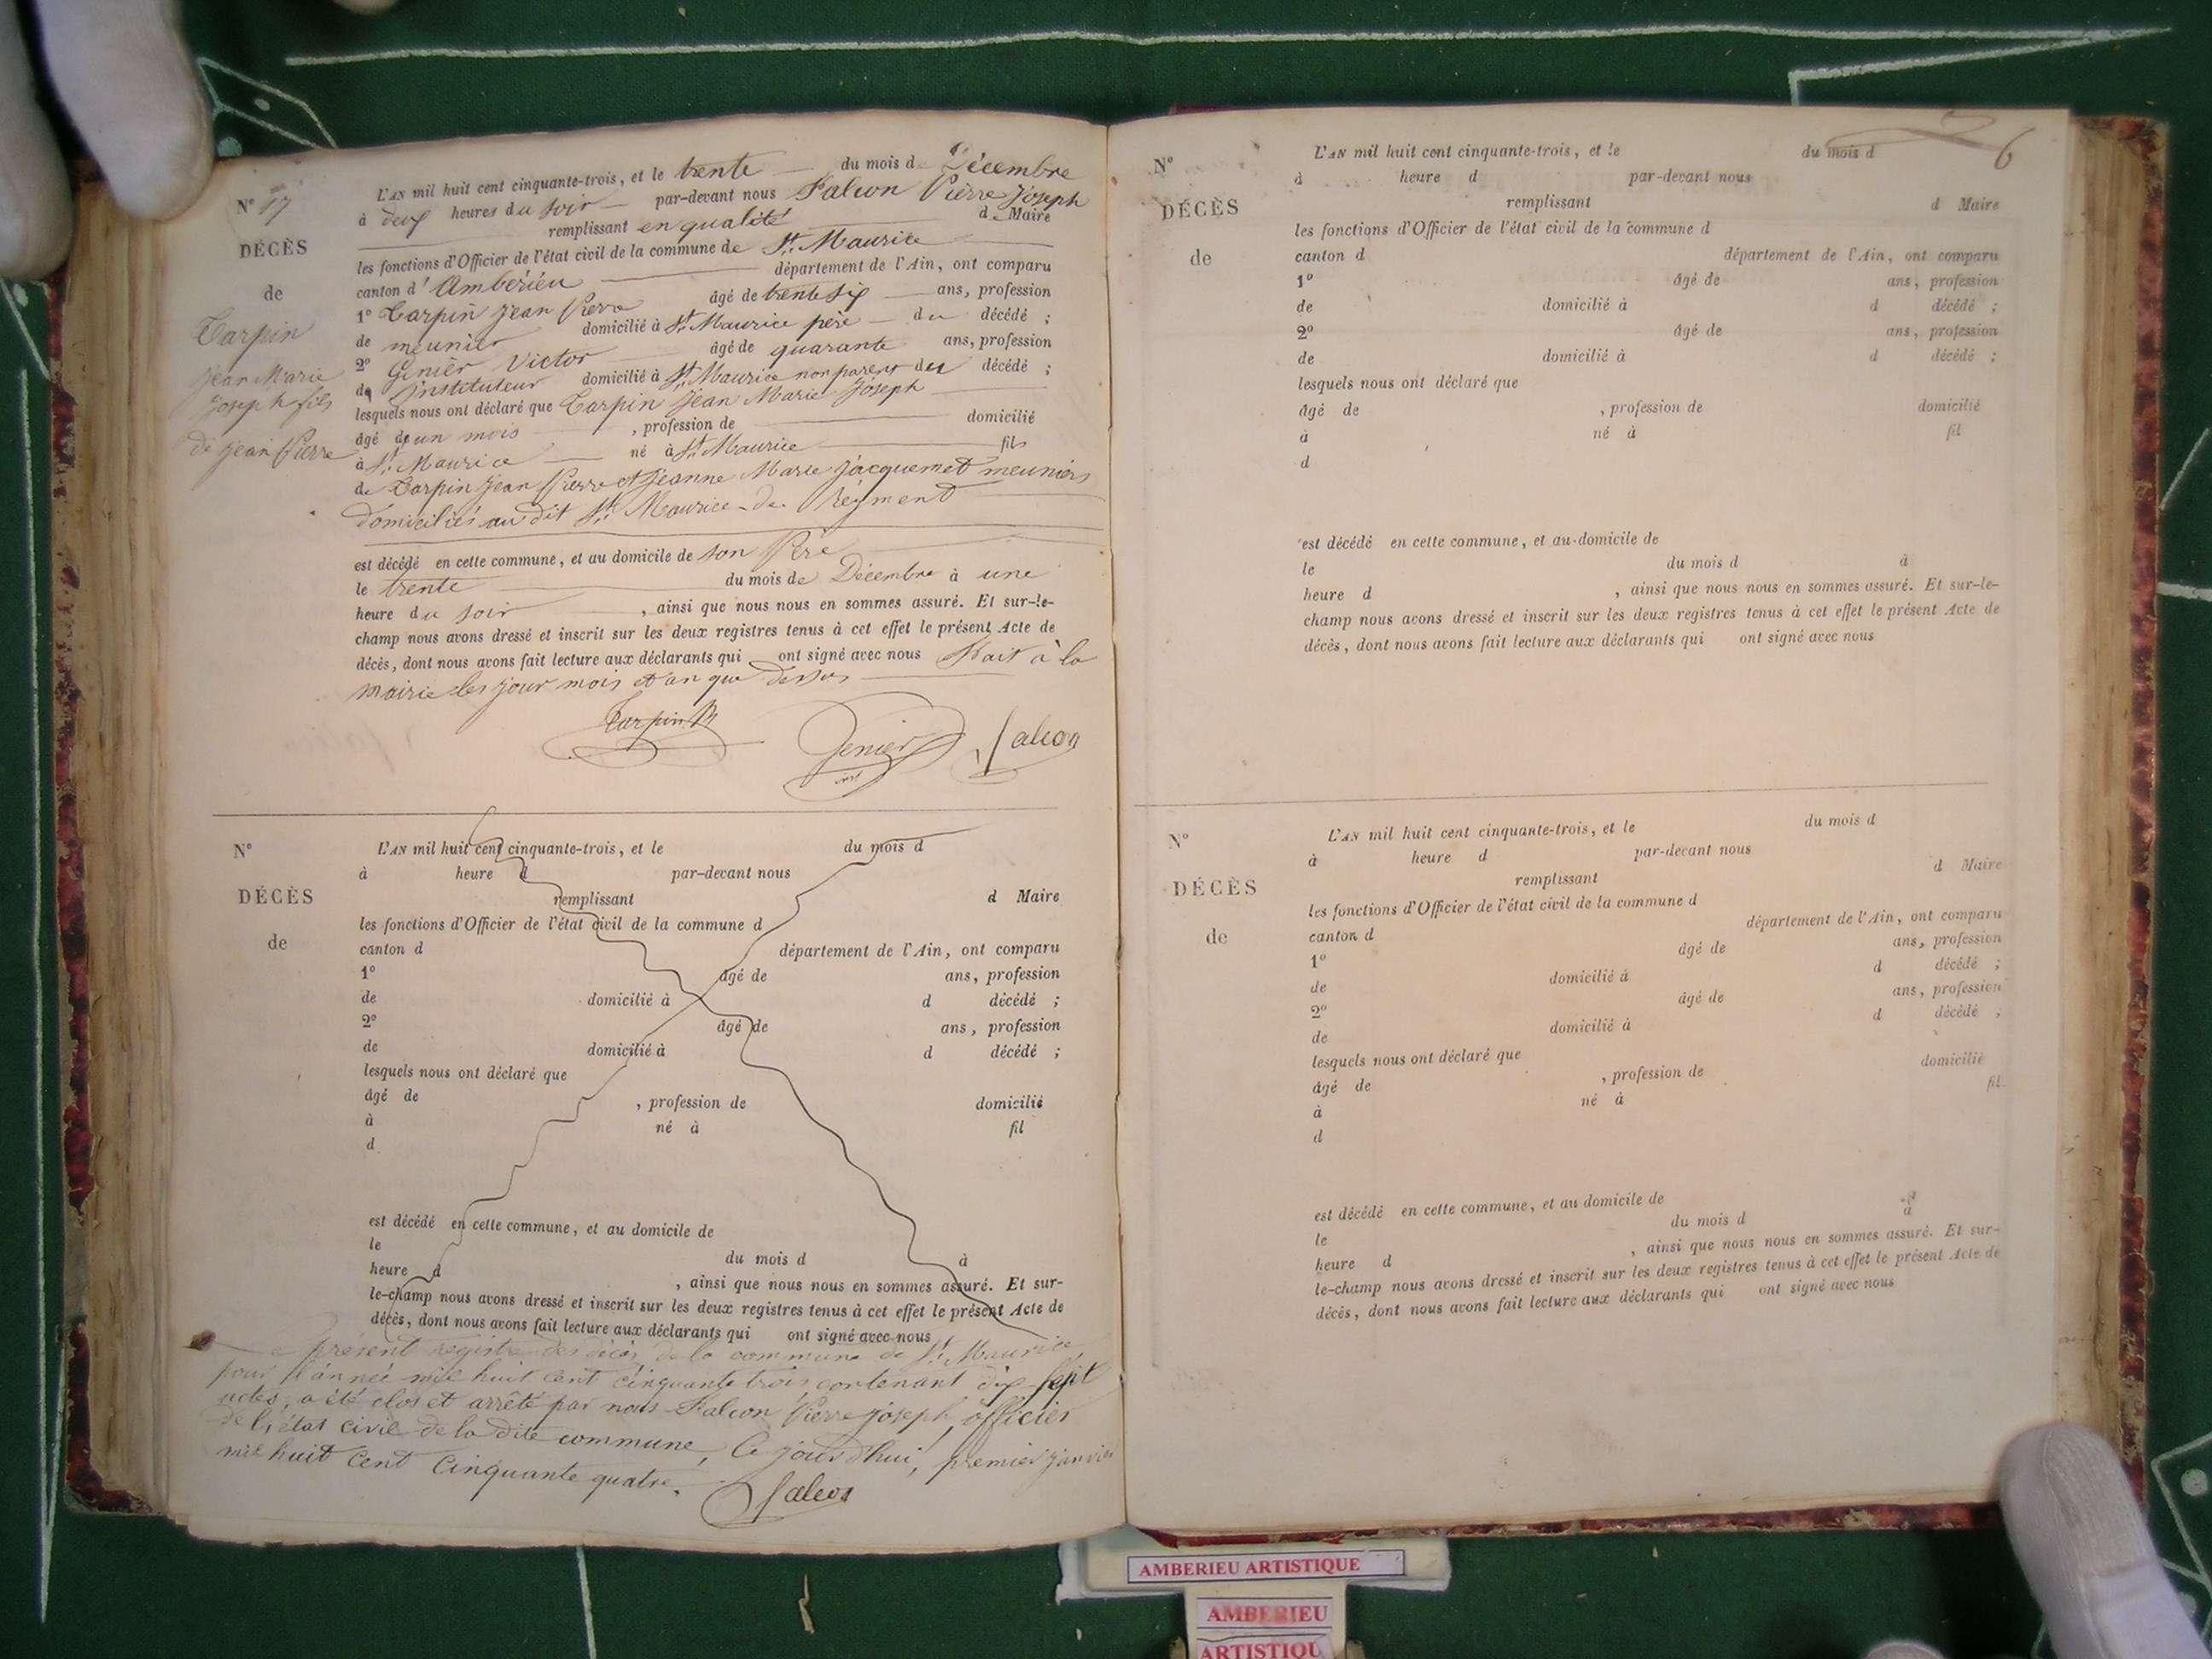 N° 17
DÉCÈS
de
Carpin
Jean Marie
Joseph fils
de Jean Pierre
L'AN mil huit cent cinquante-trois, et le trente du mois de Décembre
à deux heures du soir par-devant nous Falcon Pierre Joseph
remplissant en qualité d Maire
les fonctions d'Officier de l'état civil de la commune de St. Maurice
canton d'Ambérieu département de l'Ain, ont comparu
1° Carpin Jean Pierre âgé de trente six ans, profession
de meunier domicilié à St. Maurice père du décédé ;
2° Genier Victor âgé de quarante ans, profession
de instituteur domicilié à St. Maurice non parent du décédé ;
lesquels nous ont déclaré que Carpin Jean Marie Joseph
âgé de un mois , profession de domicilié
à St. Maurice né à St. Maurice fils
de Carpin Jean Pierre et Jeanne Marie Jacquemet meuniers
domiciliés au dit St. Maurice de Rément
est décédé en cette commune, et au domicile de son Père
le trente du mois de Décembre à une
heure du soir , ainsi que nous nous en sommes assuré. Et sur-le-
champ nous avons dressé et inscrit sur les deux registres tenus à cet effet le présent Acte de
décès, dont nous avons fait lecture aux déclarants qui ont signé avec nous Fait à la
mairie les jour mois et an que dessus
Carpin Genier Falcon
N°
DÉCÈS
de
L'AN mil huit cent cinquante-trois, et le du mois d
à heure d par-devant nous
remplissant d Maire
les fonctions d'Officier de l'état civil de la commune d
canton d département de l'Ain, ont comparu
1° âgé de ans, profession
de domicilié à d décédé ;
2° âgé de ans, profession
de domicilié à d décédé ;
lesquels nous ont déclaré que
âgé de , profession de domicilié
à né à fil
d
est décédé en cette commune, et au domicile de
le du mois d à
heure d , ainsi que nous nous en sommes assuré. Et sur-
le-champ nous avons dressé et inscrit sur les deux registres tenus à cet effet le présent Acte de
décès, dont nous avons fait lecture aux déclarants qui ont signé avec nous
Le présent registre des décès de la commune de St. Maurice,
pour l'année mil huit cent cinquante trois contenant dix-sept
actes, a été clos et arrêté par nous Falcon Pierre Joseph, officier
de l'état civil de la dite commune, Ce jourd'hui, premier janvier
mil huit cent cinquante quatre.
Falcon
6
N°
DÉCÈS
de
L'AN mil huit cent cinquante-trois, et le du mois d
à heure d par-devant nous
remplissant d Maire
les fonctions d'Officier de l'état civil de la commune d
canton d département de l'Ain, ont comparu
1° âgé de ans, profession
de domicilié à d décédé ;
2° âgé de ans, profession
de domicilié à d décédé ;
lesquels nous ont déclaré que
âgé de , profession de domicilié
à né à fil
d
est décédé en cette commune, et au-domicile de
le du mois d à
heure d , ainsi que nous nous en sommes assuré. Et sur-le-
champ nous avons dressé et inscrit sur les deux registres tenus à cet effet le présent Acte de
décès, dont nous avons fait lecture aux déclarants qui ont signé avec nous
N°
DÉCÈS
de
L'AN mil huit cent cinquante-trois, et le du mois d
à heure d par-devant nous
remplissant d Maire
les fonctions d'Officier de l'état civil de la commune d
canton d département de l'Ain, ont comparu
1° âgé de ans, profession
de domicilié à d décédé ;
2° âgé de ans, profession
de domicilié à d décédé ,
lesquels nous ont déclaré que
âgé de , profession de domicilié
à né à fil
d
est décédé en cette commune, et au domicile de
le du mois d à
heure d , ainsi que nous nous en sommes assuré. Et sur-
le-champ nous avons dressé et inscrit sur les deux registres tenus à cet effet le présent Acte de
décès, dont nous avons fait lecture aux déclarants qui ont signé avec nous
AMBERIEU ARTISTIQUE
AMBERIEU
ARTISTIQU